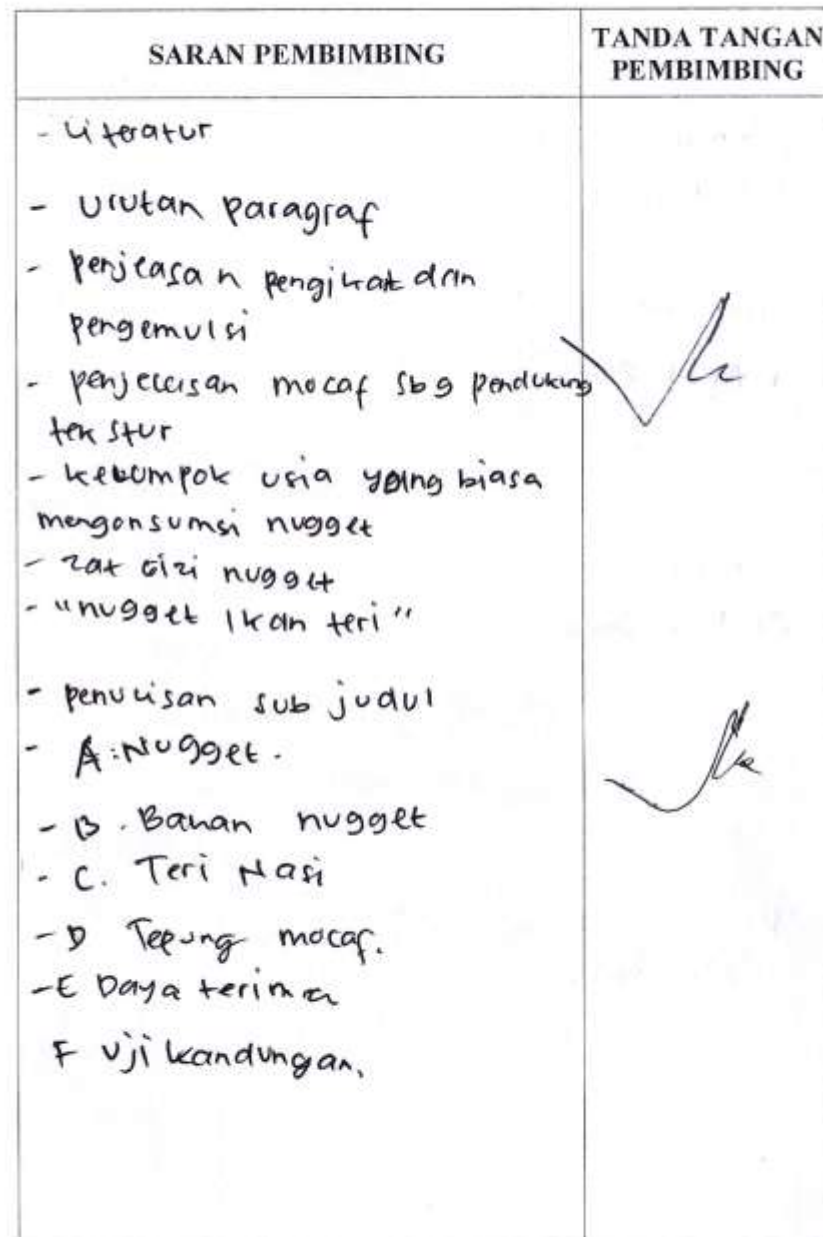 SARAN PEMBIMBING
TANDA TANGAN
PEMBIMBING
- Literatur
- Urutan Paragraf
- Penjelasan pengikat dan
pengemulsi
- Penjelasan mocaf sbg pendukung
tekstur
- kelompok usia yang biasa
mengonsumsi nugget
- zat Gizi nugget
- "nugget Ikan teri"
- penulisan sub judul
- A. Nugget.
- B. Bahan nugget
- C. Teri Nasi
- D Tepung mocaf.
- E Daya terima
F Uji kandungan.